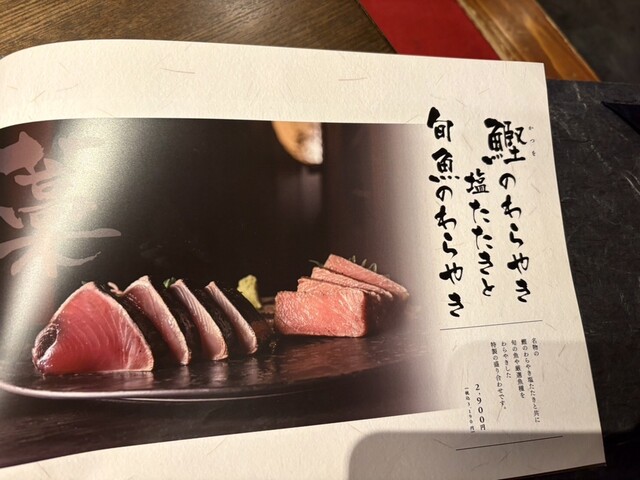 かつを
鰹のわらやき
塩たたきと
旬魚のわらやき
名物の
鰹のわらやき塩たたきと共に
旬の魚や厳選魚種を
わらやきした
特製の盛り合わせです。
2,900円